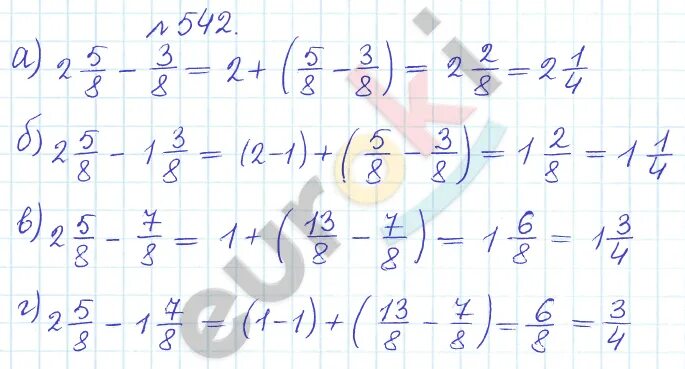 №542.
а) 2 5/8 − 3/8 = 2 + (5/8 − 3/8) = 2 2/8 = 2 1/4
б) 2 5/8 − 1 3/8 = (2−1) + (5/8 − 3/8) = 1 2/8 = 1 1/4
в) 2 5/8 − 7/8 = 1 + (13/8 − 7/8) = 1 6/8 = 1 3/4
г) 2 5/8 − 1 7/8 = (1−1) + (13/8 − 7/8) = 6/8 = 3/4
euroki